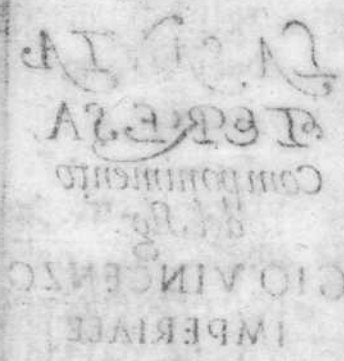 LA S.TA
TERESA
Componimento
del Sig.r
GIO VINCENZO
IMPERIALE